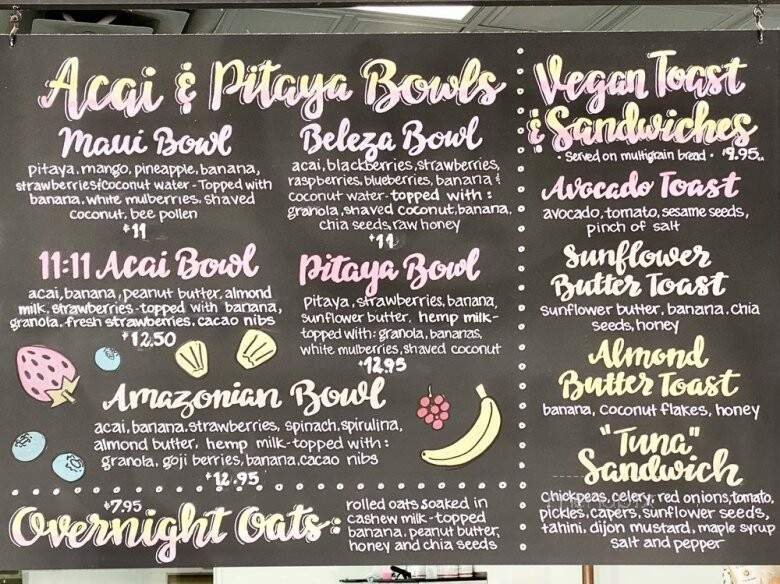 Acai & Pitaya Bowls
Maui Bowl
pitaya, mango, pineapple, banana,
strawberries & coconut water - Topped with
banana, white mulberries, shaved
coconut, bee pollen
$11
Beleza Bowl
acai, blackberries, strawberries,
raspberries, blueberries, banana &
coconut water - topped with :
granola, shaved coconut, banana,
chia seeds, raw honey
$11
11:11 Acai Bowl
acai, banana, peanut butter, almond
milk, strawberries - topped with banana,
granola, fresh strawberries, cacao nibs
$12.50
Pitaya Bowl
Pitaya, strawberries, banana,
sunflower butter, hemp milk -
topped with: granola, bananas,
white mulberries, shaved coconut
$12.95
Amazonian Bowl
acai, banana, strawberries, spinach, spirulina,
almond butter, hemp milk - topped with :
granola, goji berries, banana, cacao nibs
$12.95
$7.95
Overnight Oats:
rolled oats soaked in
cashew milk - topped
banana, peanut butter,
honey and chia seeds
Vegan Toast
& Sandwiches
• Served on multigrain bread • $9.95
Avocado Toast
avocado, tomato, sesame seeds,
pinch of salt
Sunflower
Butter Toast
sunflower butter, banana, chia
seeds, honey
Almond
Butter Toast
banana, coconut flakes, honey
"Tuna"
Sandwich
chickpeas, celery, red onions, tomato,
pickles, capers, sunflower seeds,
tahini, dijon mustard, maple syrup
salt and pepper